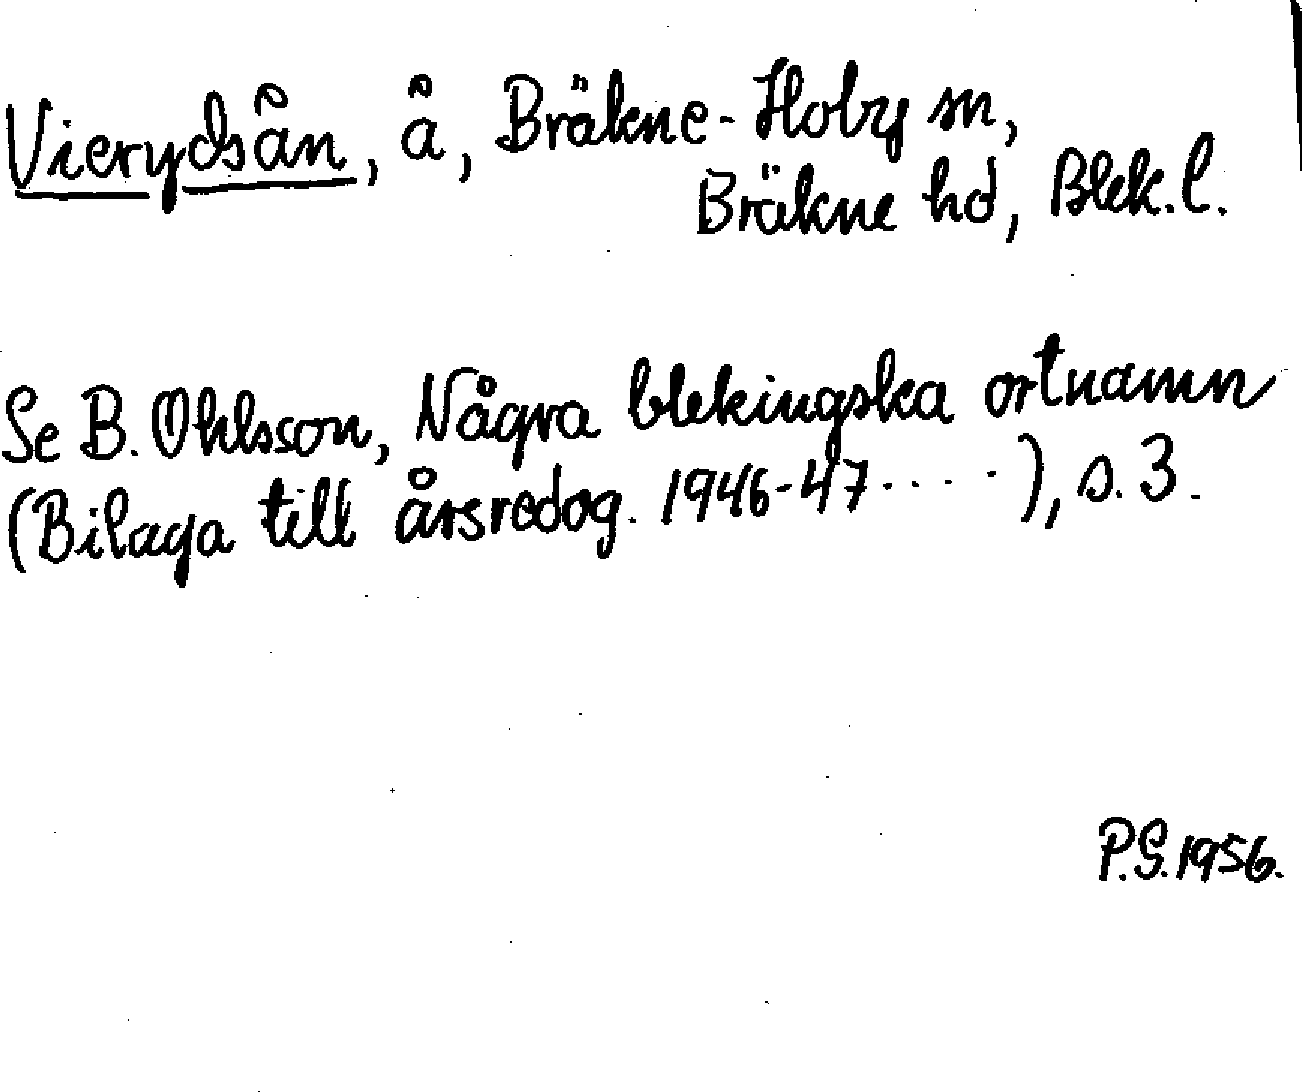 Vierydsån, å, Bräkne-Hoby sn,
Bräkne hd, Blek. l.
Se B. Ohlsson, Några blekingska ortnamn
(Bilaga till årsredog. 1946-47 . . . . .), s. 3.
P.S. 1956.